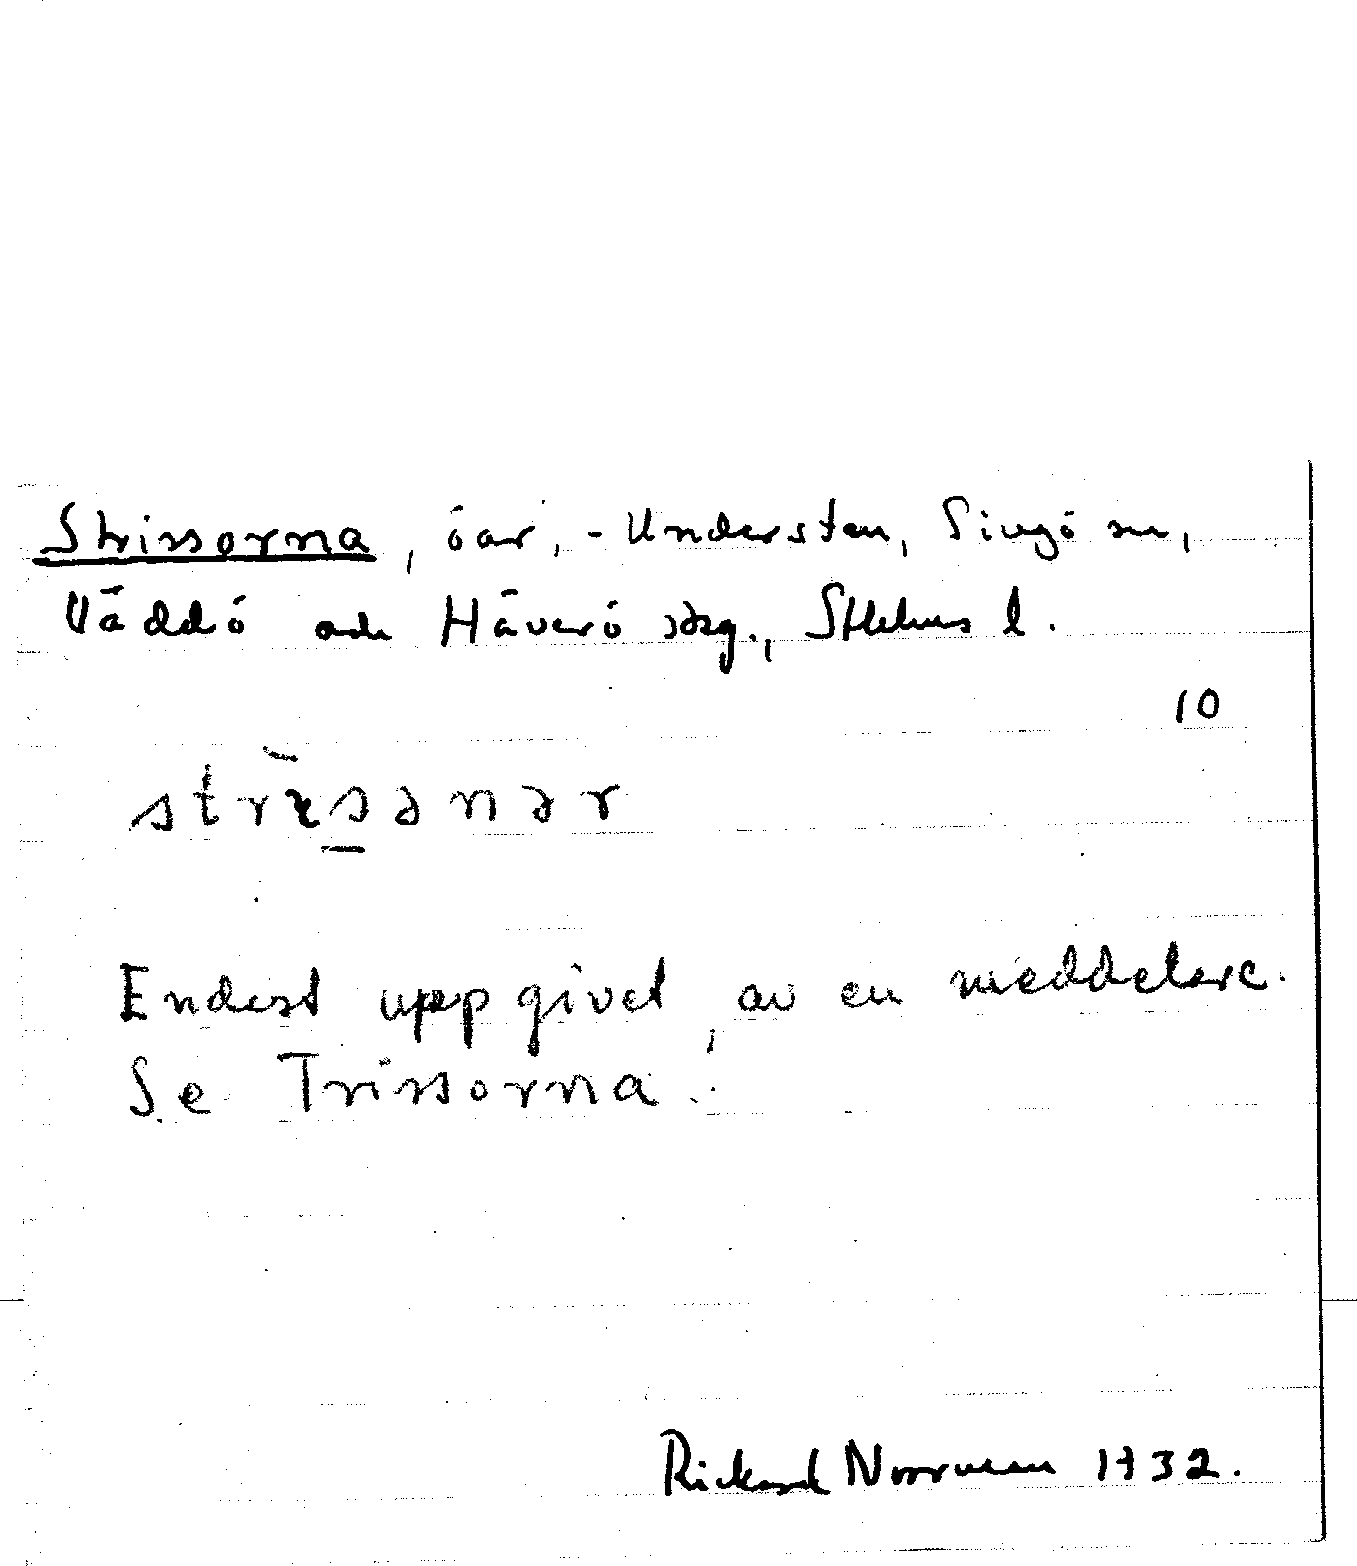 Strissorna, öar, - Understen, Singö sn,
Väddö och Häverö skg., Sthlms l.
10
strìsənər
Endast uppgivet av en meddelare.
Se Trissorna.
Rickard Norrman 1932.